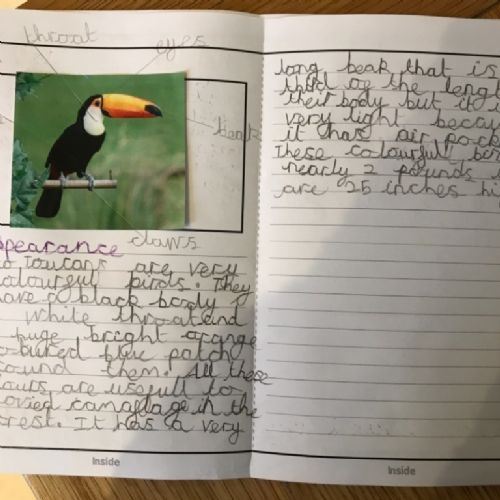 throat
eyes
beak
claws
ppearance
Toucans are very
olourful birds. They
have a black body
white throat and
huge bright orange
blue patch
ound them. All these
ours are usefull to
camaflage in the
rest. It has a very
Inside
long beak that is
third of the leng
their body but it
very light becau
it has air pock
These colourfull bir
nearly 2 pounds
are 25 inches hi
Inside